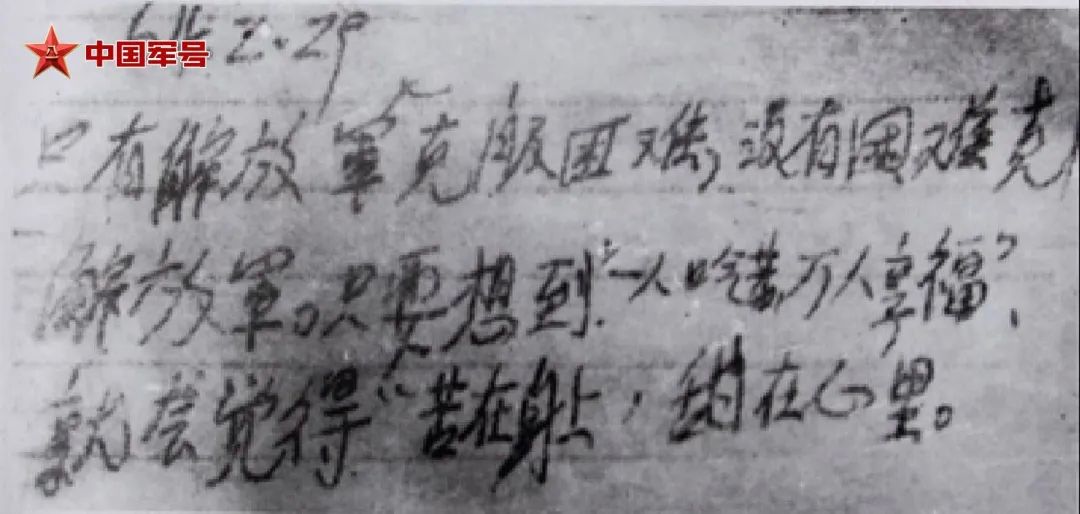 中国军号
64.2.29
只有解放军克服困难，没有困难克
解放军。只要想到“一人吃苦，万人享福”、
就会觉得“苦在身上，甜在心里。